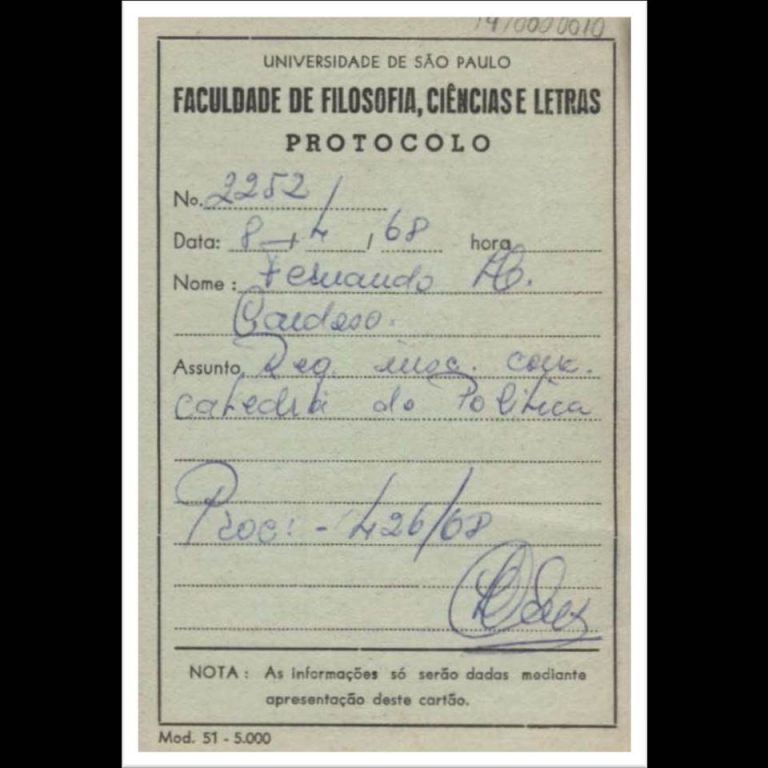 14/0000010
UNIVERSIDADE DE SÃO PAULO
FACULDADE DE FILOSOFIA, CIÊNCIAS E LETRAS
PROTOCOLO
No. 2252/
Data: 8 / 4 / 68 hora
Nome: Fernando H.
Cardoso.
Assunto Req. insc. conc.
catedra de Politica
Proc: - 426/68
NOTA: As informações só serão dadas mediante
apresentação deste cartão.
Mod. 51 - 5.000